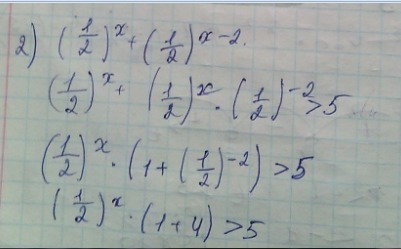 2) (1/2)^x + (1/2)^x-2.
(1/2)^x + (1/2)^x · (1/2)^-2 > 5
(1/2)^x · (1 + (1/2)^-2) > 5
(1/2)^x · (1+4) > 5